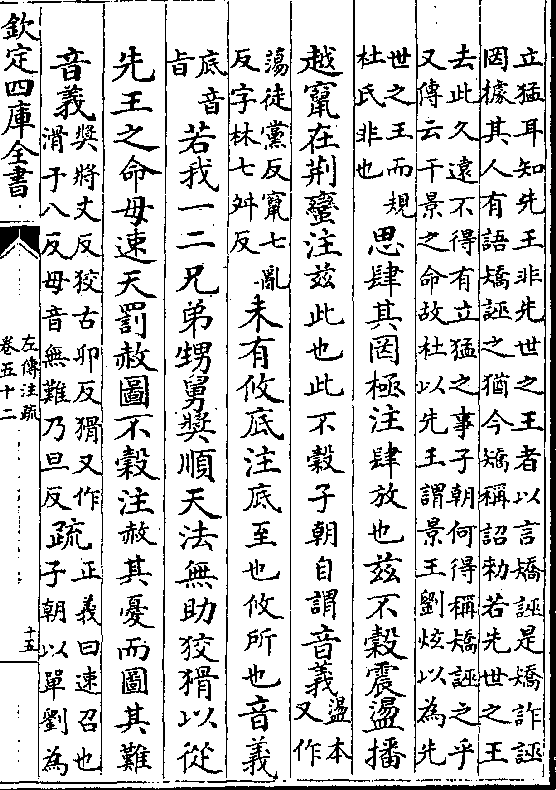 立猛耳知先王非先世之王者以言矯誣是矯詐誣
罔據其人有語矯誣之猶今矯稱詔勅若先世之王
去此久遠不得有立猛之事子朝何得稱矯誣之乎
又傳云干景之命故杜以先王謂景王劉炫以為先
世之王而規
杜氏非也
思肆其罔極注肆放也兹不穀震盪播
越竄在荆蠻注兹此也此不穀子朝自謂音義
盪本
又作
蕩徒黨反竄七亂
反字林七舛反
未有攸底注底至也攸所也音義
底音
旨
若我一二兄弟甥舅奬順天法無助狡猾以從
先王之命毋速天罰赦圖不穀注赦其憂而圖其難
音義
奬將丈反狡古卯反猾又作
滑于八反毋音無難乃旦反
疏
正義曰速召也
子朝以單劉為
欽定四庫全書
左傳注疏
卷五十二
十五